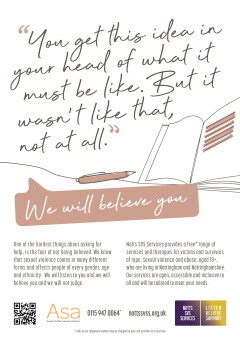 "You get this idea in
your head of what it
must be like. But it
wasn't like that,
not at all."
We will believe you
One of the hardest things about asking for
help, is the fear of not being believed. We know
that sexual violence comes in many different
forms and affects people of every gender, age
and ethnicity. We will listen to you and we will
believe you and we will not judge.
Notts SVS Services provides a free* range of
services and therapies for victims and survivors
of rape, sexual violence and abuse, aged 18+,
who are living in Nottingham and Nottinghamshire.
Our services are open, accessible and inclusive to
all and will be tailored to meet your needs.
Asa
0115 947 0064*
nottssvss.org.uk
NOTTS
SVS
SERVICES
LISTEN
BELIEVE
SUPPORT